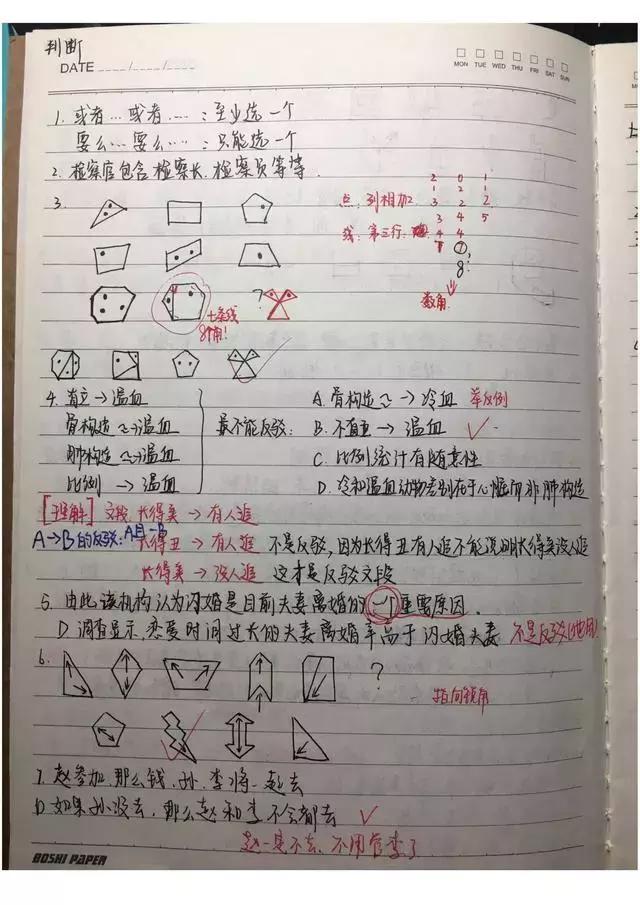 判断
DATE
MON TUE WED THU FRI SAT SUN
1. 或者…或者…… : 至少选一个
要么…要么…… : 只能选一个
2. 检察官包含检察长、检察员等等.
3.
点: 列相加
线: 第三行:
2 0 1
1 2 1
3 2 2
3 4 5
4 4
7
8!
数角.
?
七条线
8个角!
4. 直立 → 温血
骨构造 ~→ 温血
肺构造 ~→ 温血
比例 → 温血
最不能反驳:
A. 骨构造 ~ → 冷血 举反例
B. 不直立 → 温血 ✓
C. 比例统计有随意性
D. 冷和温血动物差别在于心脏而非肺构造
[理解] 文段: 长得美 → 有人追
A→B的反驳: A且-B
长得丑 → 有人追 不是反驳, 因为长得丑有人追不能说明长得美没人追
长得美 → 没人追 这才是反驳文段
5. 由此该机构认为闪婚是目前夫妻离婚的一个重要原因.
D 调查显示, 恋爱时间过长的夫妻离婚率高于闪婚夫妻 不是反驳(他因)
6.
?
指向锐角
7. 赵参加, 那么钱、孙、李将一起去
D. 如果孙没去, 那么赵和李不会都去 ✓
赵一定不去、不用管李了
BOSHI PAPER